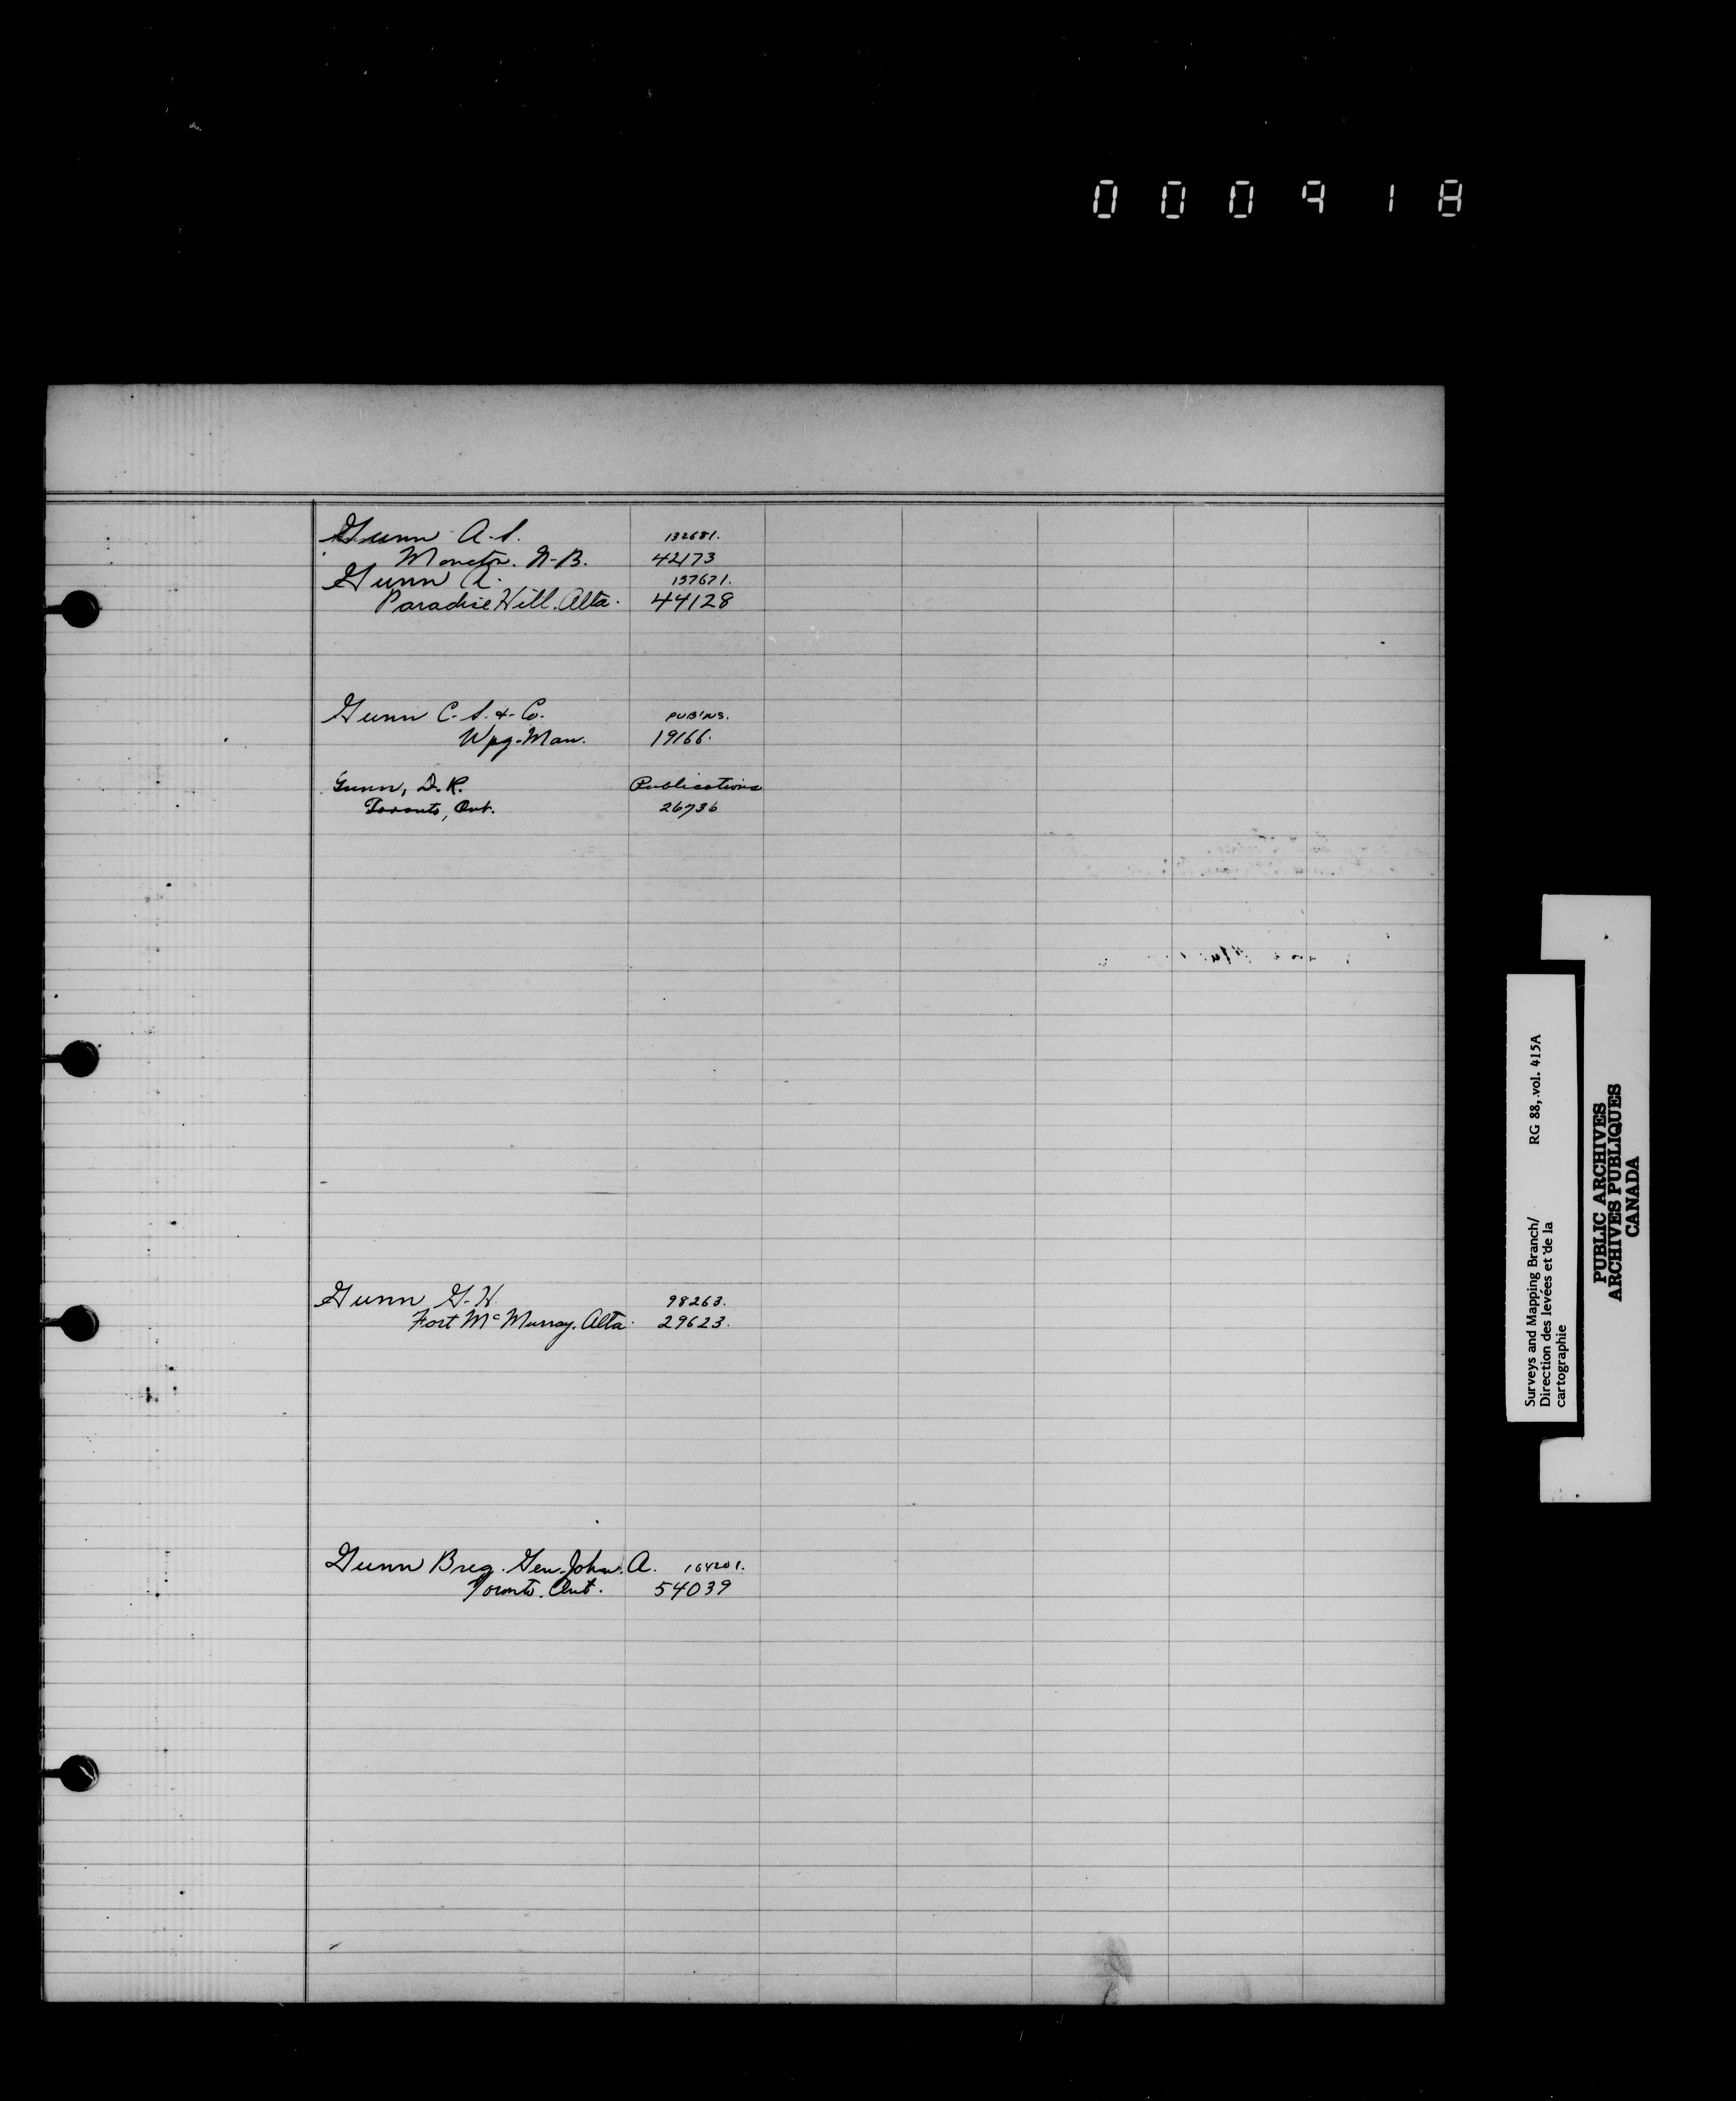 000918
Gunn A. S. 132681.
Moncton. N-B. 42173
Gunn A. 137671.
Paradise Hill. Alta. 44128
Gunn C. S. & Co. PUB'NS.
Wpg-Man. 19166.
Gunn, D. R. Publications
Toronto, Ont. 26736
Gunn G. H. 98263.
Fort McMurray. Alta. 29623.
Gunn Brig. Gen. John. A. 164201.
Toronto. Ont. 54039
Surveys and Mapping Branch/ RG 88, vol. 415A
Direction des levées et de la
cartographie
PUBLIC ARCHIVES
ARCHIVES PUBLIQUES
CANADA